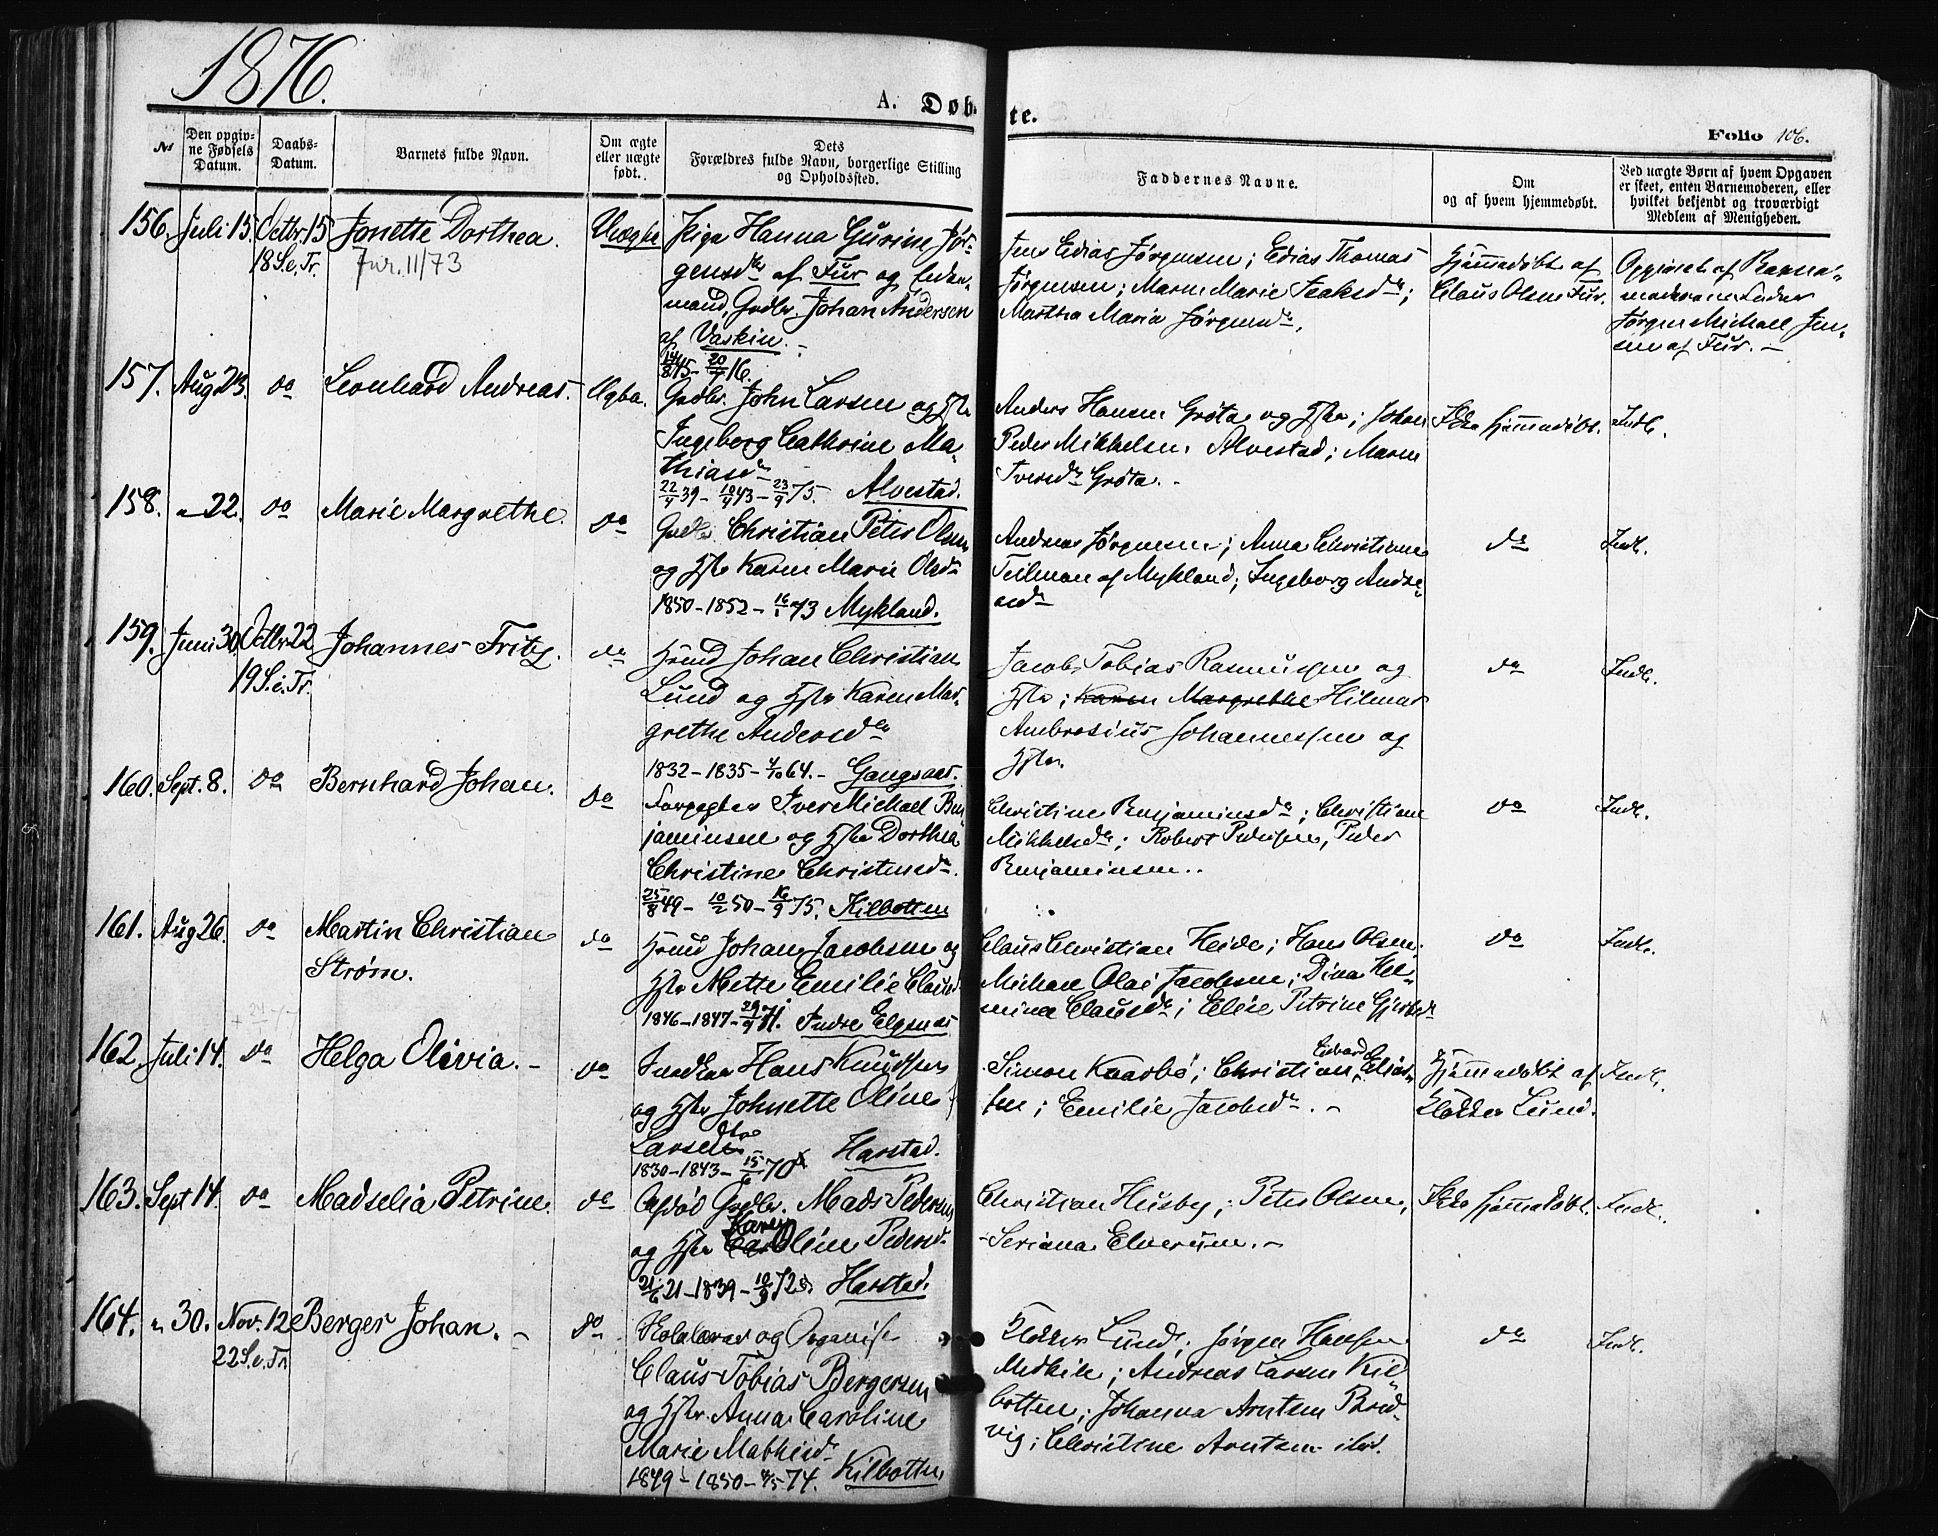 1876.
A. Døbte.
Folio 106.
No
Den opgivne Fødsels Datum.
Daabs-Datum.
Barnets fulde Navn.
Om ægte eller uægte født.
Dets Forældres fulde Navn, borgerlige Stilling og Opholdssted.
Faddernes Navne.
Om og af hvem hjemmedøbt.
Ved uægte Børn af hvem Opgaven er skeet, enten Barnemoderen, eller hvilket bekjendt og troværdigt Medlem af Menigheden.
156. Juli 15. Octbr. 15 Jonette Dorthea. Uægte Pige Hanna Gurine Jør-
18 S.e.Tr.
gensdtr af Fur og
mand, Gdbr. Johan Andersen
af Vaskin.
Jens Edias Jørgensen; Edias Thomas
Jørgensen; Maren Marie Isaksdr;
Martha Maria Jørgensdr.
Hjemmedøbt af
Claus Olsen Fur.
Opgivet af Barne-
moderens Fader
Jørgen Michael Jen-
sen af Fur. -
157. Aug 23. do Leonhard Andreas. Ægte.
Gdbr. John Larsen og Hstr
Ingeborg Cathrine Ma-
thiasdr
Alvestad.
Anders Hansen Grøta og Hstr; Johan
Peder Mikkelsen Alvestad; Maren
Iversdr Grøta. -
Ikke hjemmedøbt.
Indl.
158. " 22. do Marie Margrethe. do
Gdbr. Christian Peter Olsen
og Hstr Karen Marie Olsdr
1850 - 1852 - 16/1 73 Mykland.
Andreas Jørgensen; Anna Christiane
Teilman af Mykland; Ingeborg Andre-
asdr
do
Indl.
159. Juni 30. Octbr 22 Johannes Fritz. do
19 S.e.Tr.
Hmd Johan Christian
Lund og Hstr Karen Mar-
grethe Andersdtr
1832 - 1835 - 4/10 64. - Gangsaas.
Jacob Tobias Rasmussen og
Hstr; Karen Margrethe Hilmar
Ambrosius Johannessen og
Hstr.
do
Indl.
160. Sept. 8. do Bernhard Johan. do
Forpagter Iver Michael Ben-
jaminsen og Hstr Dorthea
Christine Christensdr.
25/8 49 - 10/2 50 - 16/9 75. Kilbotten
Christine Benjaminsdr; Christiane
Mikkelsdr; Robert Pedersen, Peder
Benjaminsen.
do
Indl.
161. Aug 26. do Martin Christian do
Strøm.
Hmd Johan Jacobsen og
Hstr Mette Emilie Clausd
1846 - 1847 - 29/9 71. Indre Elgsnæs
Claus Christian Heide; Hans Olsen;
Michael Olai Jacobsen; Dina Hel-
mina Clausdr; Elise Petrine Gjertsdr
do
Indl.
162. Juli 14. do Helga Olivia. - do
Hans Knudssen
og Hstr Johnette Oline
Larsdtr
1830 - 1843 - 70 Harstad.
Simon Kaarbø; Christian Edvard Elias-
sen; Emilie Jacobsdr. -
Hjemmedøbt af
Klokker Lund.
Indl.
163. Sept 14. do Madselia Petrine. do
Afdød Gdbr. Mads Pedersen
og Hstr Karen Oline Pedersdr
21/6 21 - 1839 - 10/9 72. Harstad.
Christian Husby; Peter Olsen;
Seriana Elverum. -
Ikke hjemmedøbt.
Indl.
164. " 30. Nov. 12 Berger Johan. - do
22 S.e.Tr.
Skolelærer og Organist
Claus Tobias Bergersen
og Hstr Anna Caroline
Marie Mathisdr
1849 - 1850 - 74. Kilbotten
Klokker Lund; Jørgen Hansen
Medkile; Andreas Larsen Kil-
botten; Johanna Arntsen Bred-
vig; Christine Arntsen ibd.
do
Indl.